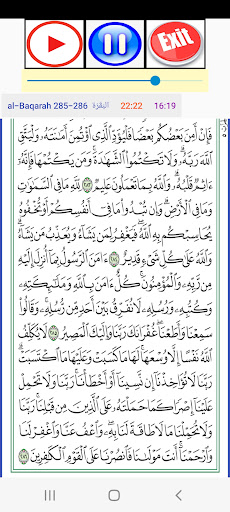 Exit
al-Baqarah 285-286 البقرة 22:22 16:19
فَإِنْ أَمِنَ بَعْضُكُم بَعْضًا فَلْيُؤَدِّ ٱلَّذِى ٱؤْتُمِنَ أَمَـٰنَتَهُۥ وَلْيَتَّقِ
ٱللَّهَ رَبَّهُۥ وَلَا تَكْتُمُوا۟ ٱلشَّهَـٰدَةَ وَمَن يَكْتُمْهَا فَإِنَّهُۥٓ
ءَاثِمٌ قَلْبُهُۥ وَٱللَّهُ بِمَا تَعْمَلُونَ عَلِيمٌ ٢٨٣ لِّلَّهِ مَا فِى ٱلسَّمَـٰوَٰتِ
وَمَا فِى ٱلْأَرْضِ وَإِن تُبْدُوا۟ مَا فِىٓ أَنفُسِكُمْ أَوْ تُخْفُوهُ
يُحَاسِبْكُم بِهِ ٱللَّهُ فَيَغْفِرُ لِمَن يَشَآءُ وَيُعَذِّبُ مَن يَشَآءُ
وَٱللَّهُ عَلَىٰ كُلِّ شَىْءٍ قَدِيرٌ ٢٨٤ ءَامَنَ ٱلرَّسُولُ بِمَآ أُنزِلَ إِلَيْهِ
مِن رَّبِّهِۦ وَٱلْمُؤْمِنُونَ كُلٌّ ءَامَنَ بِٱللَّهِ وَمَلَـٰٓئِكَتِهِۦ
وَكُتُبِهِۦ وَرُسُلِهِۦ لَا نُفَرِّقُ بَيْنَ أَحَدٍ مِّن رُّسُلِهِۦ وَقَالُوا۟
سَمِعْنَا وَأَطَعْنَا غُفْرَانَكَ رَبَّنَا وَإِلَيْكَ ٱلْمَصِيرُ ٢٨٥ لَا يُكَلِّفُ
ٱللَّهُ نَفْسًا إِلَّا وُسْعَهَا لَهَا مَا كَسَبَتْ وَعَلَيْهَا مَا ٱكْتَسَبَتْ
رَبَّنَا لَا تُؤَاخِذْنَآ إِن نَّسِينَآ أَوْ أَخْطَأْنَا رَبَّنَا وَلَا تَحْمِلْ
عَلَيْنَآ إِصْرًا كَمَا حَمَلْتَهُۥ عَلَى ٱلَّذِينَ مِن قَبْلِنَا رَبَّنَا
وَلَا تُحَمِّلْنَا مَا لَا طَاقَةَ لَنَا بِهِۦ وَٱعْفُ عَنَّا وَٱغْفِرْ لَنَا
وَٱرْحَمْنَآ أَنتَ مَوْلَىٰنَا فَٱنصُرْنَا عَلَى ٱلْقَوْمِ ٱلْكَـٰفِرِينَ ٢٨٦